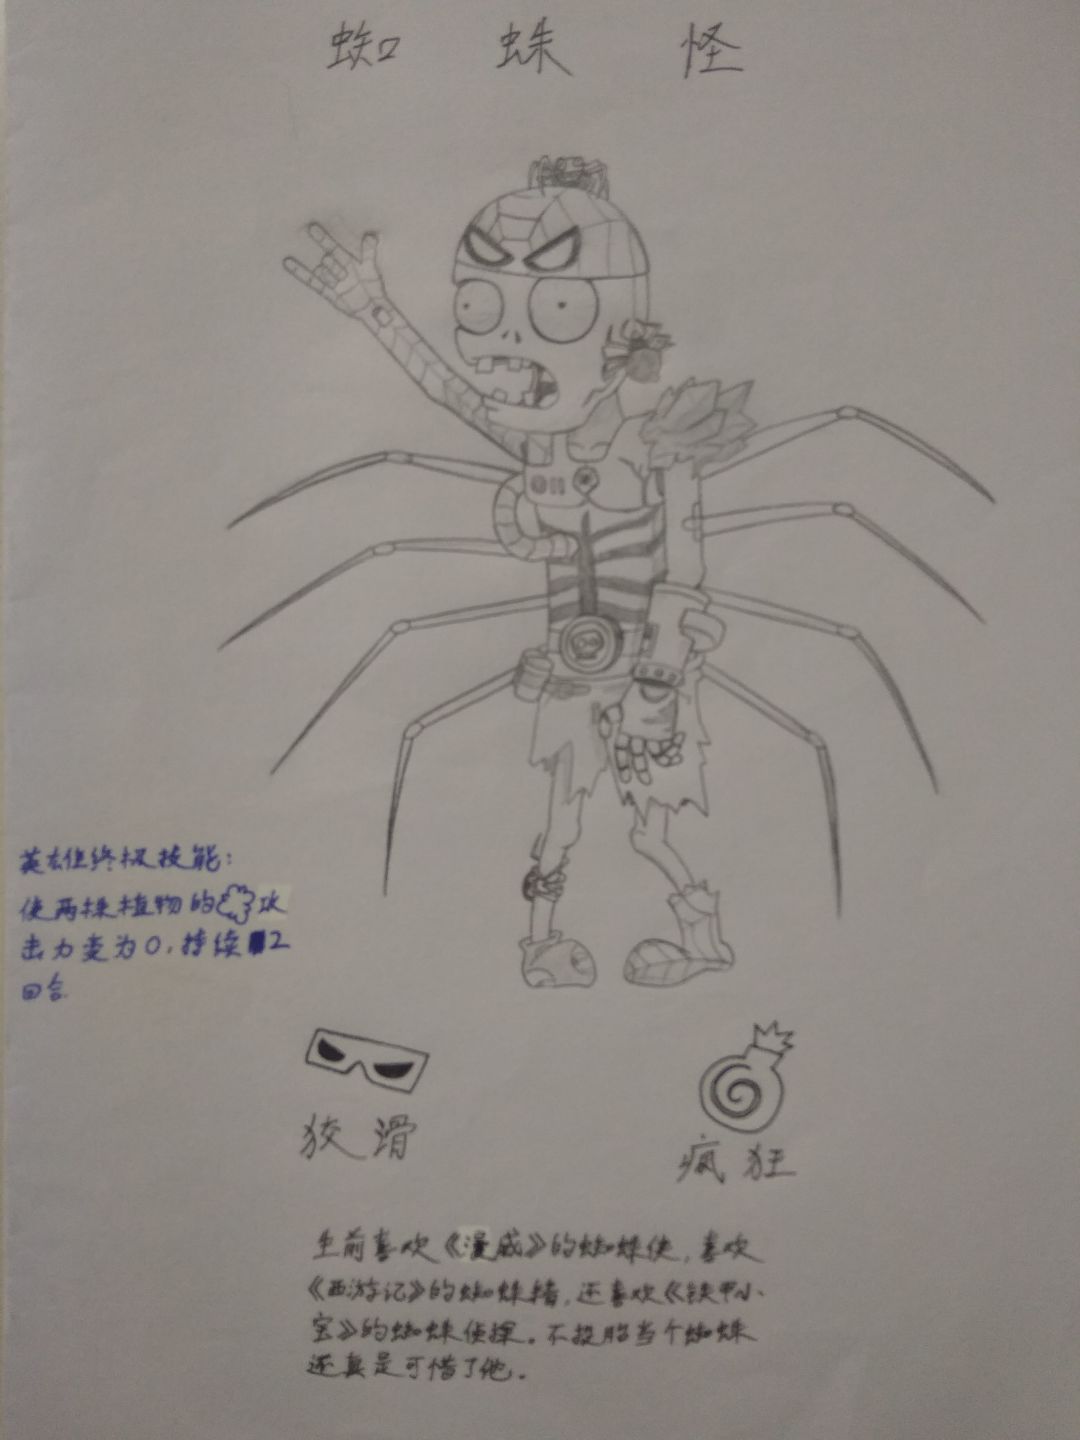 蜘 蛛 怪
英雄终极技能：
使两株植物的攻
击力变为0，持续2
回合
狡滑
疯狂
生前喜欢《漫威》的蜘蛛侠，喜欢
《西游记》的蜘蛛精，还喜欢《铁甲小
宝》的蜘蛛侦探。不投胎当个蜘蛛
还真是可惜了他。